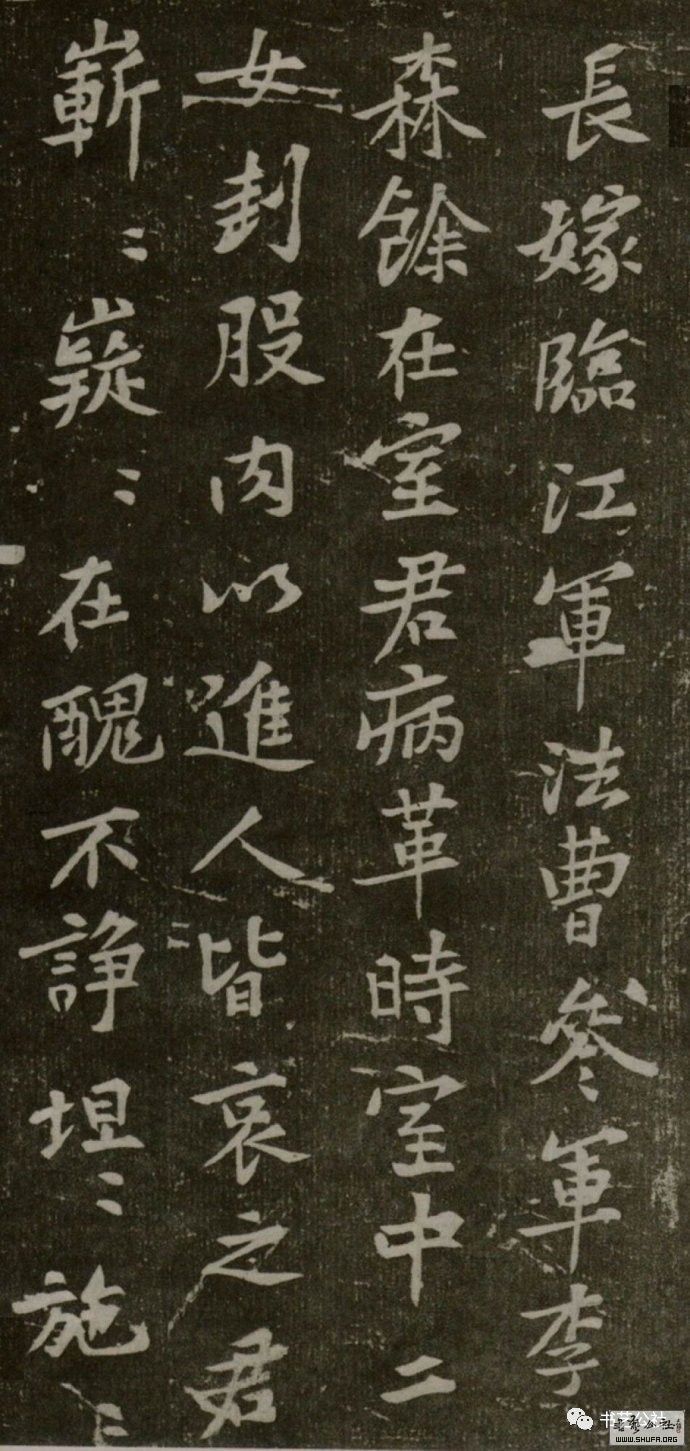 長嫁臨江軍法曹參軍李
森餘在室君病革時室中二
女刲股肉以進人皆哀之君
嶄〻嶷〻在醜不諍坦〻施〻
书艺公社
书艺公社
WWW.SHUFA.ORG